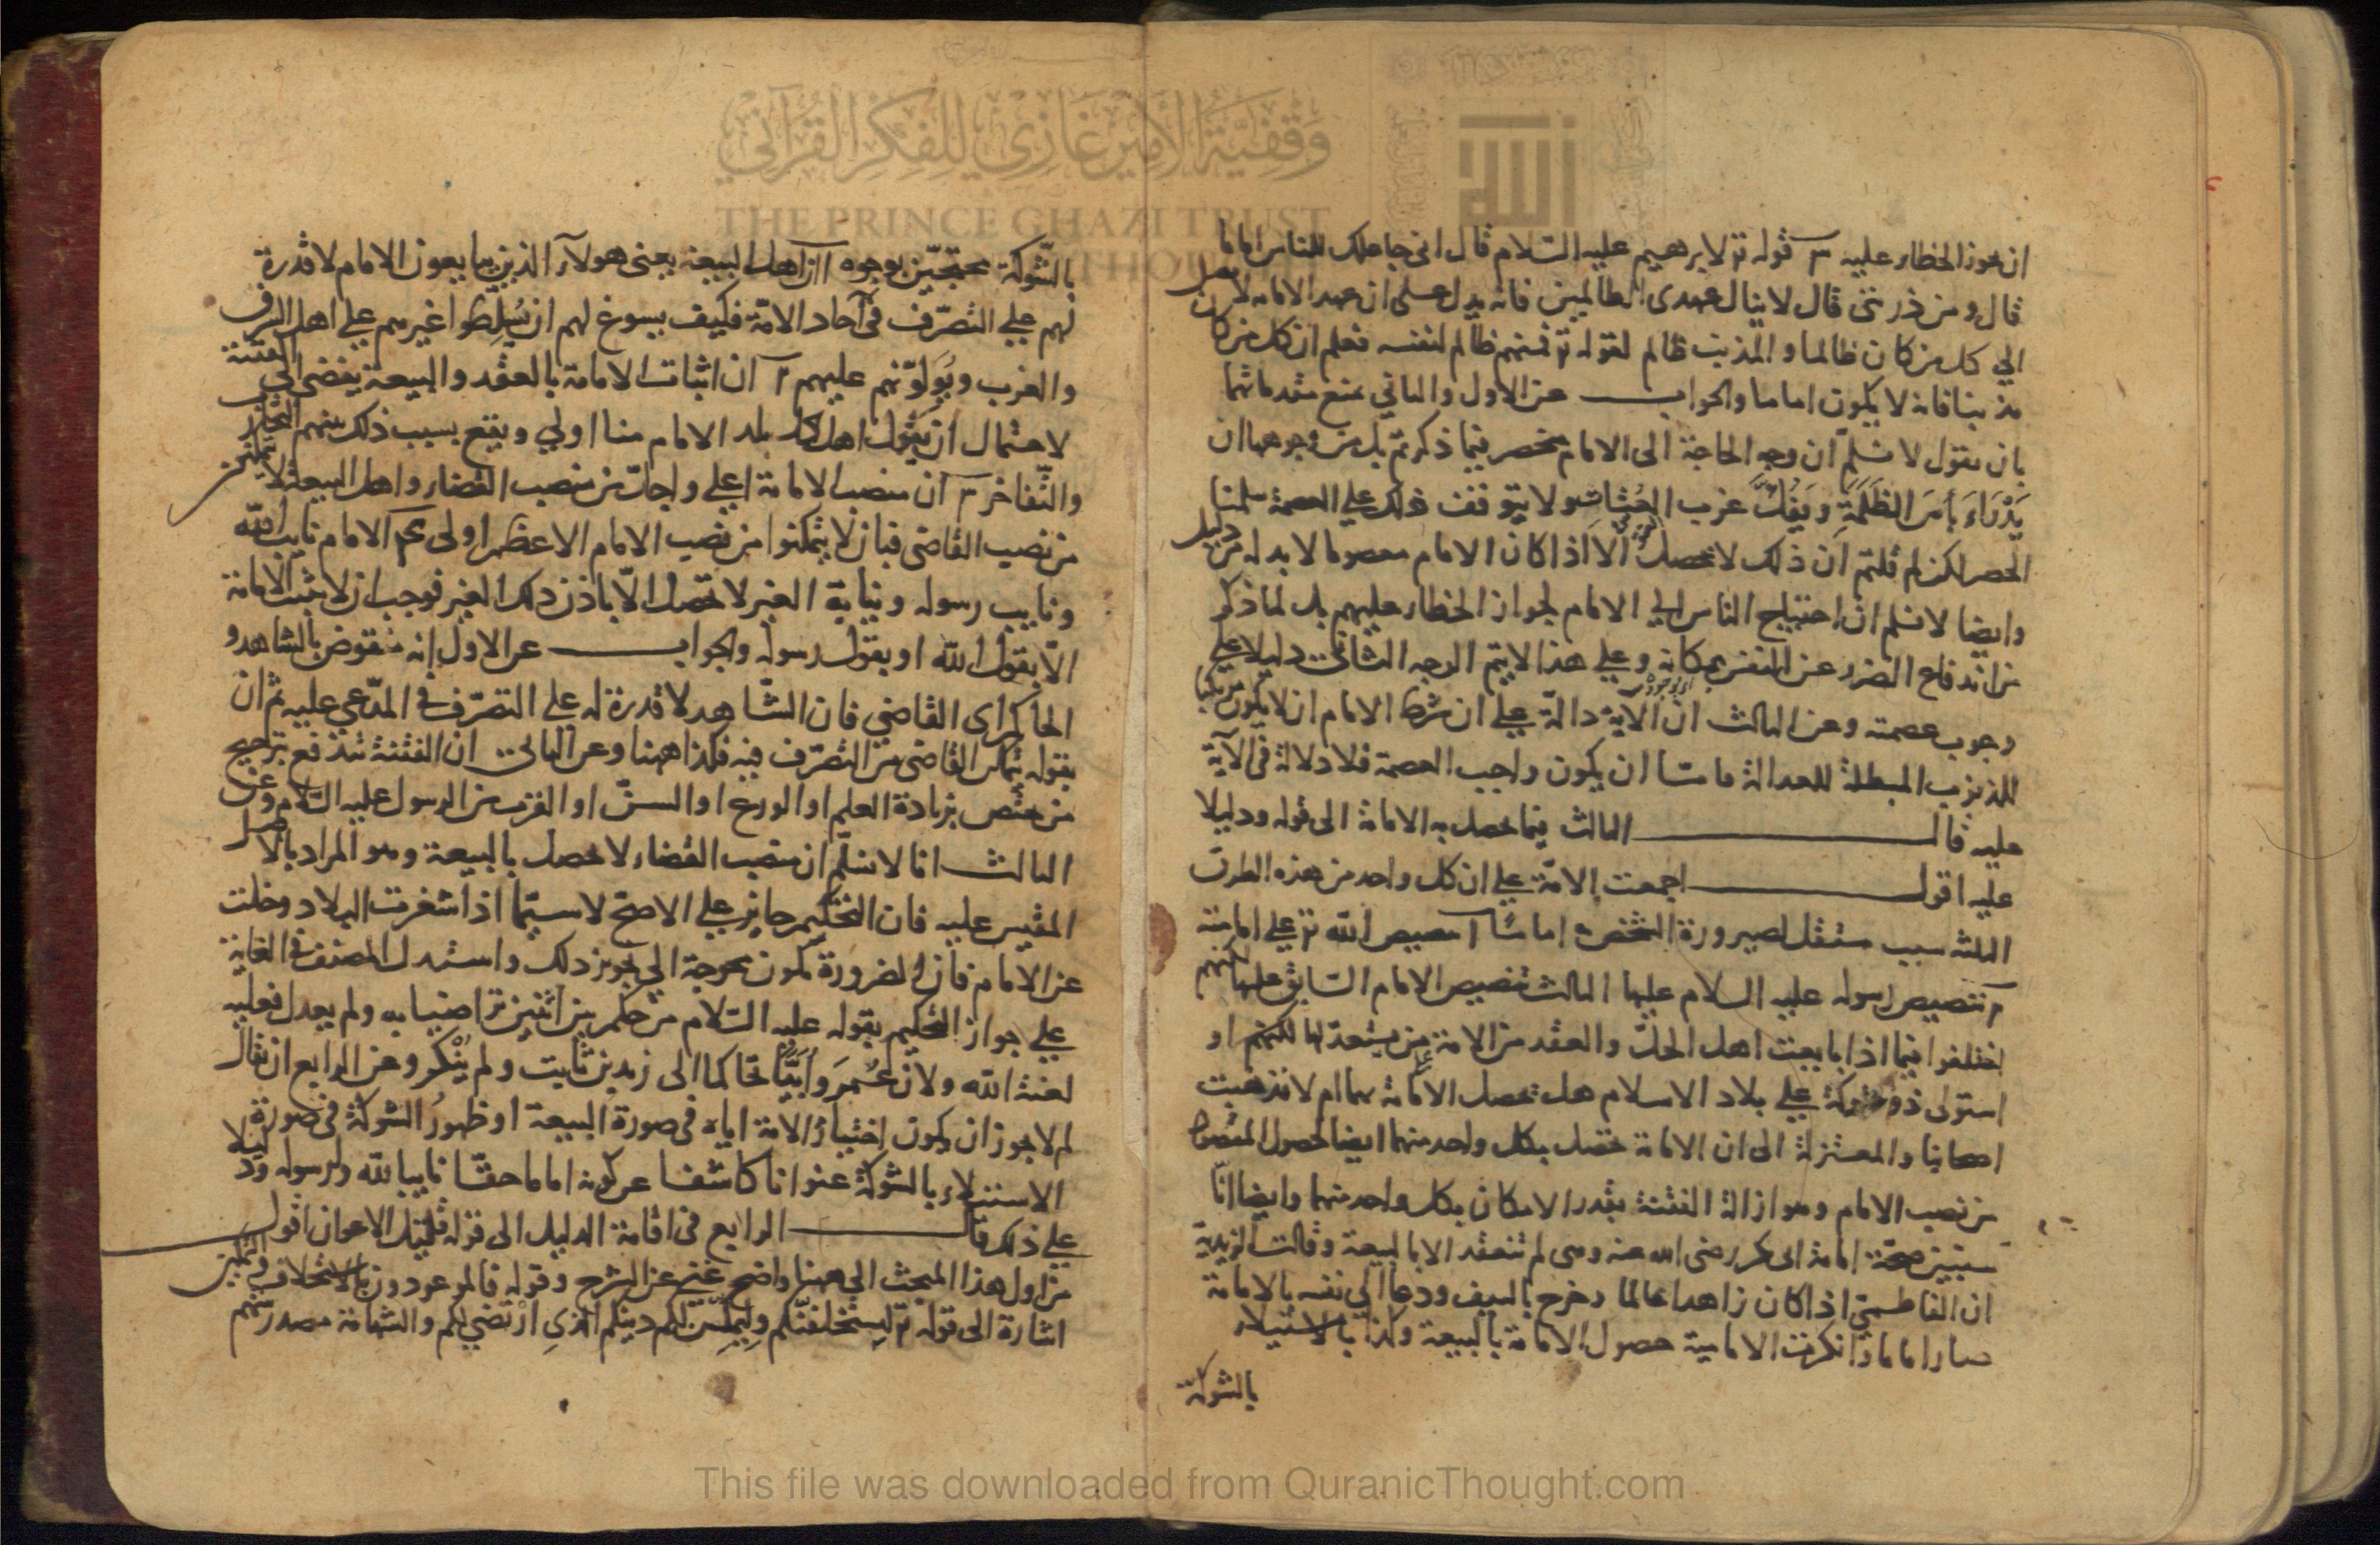 ان يجوز الخطاء عليه ٣ قوله تع لابرهيم عليه السلام قال انى جاعلك للناس اماما
قال ومن ذريتى قال لا ينال عهدى الظالمين فانه يدل على ان عهد الامامه لا يصل
الي كل من كان ظالما والمذنب ظالم لقوله تع فمنهم ظالم لنفسه فعلم ان كل من كان
مذنبا فانه لا يكون اماما والجواب عن الاول والثاني بمنع مقدماتهما
بان يقول لا نسلم ان وجه الحاجة الى الامام منحصر فيما ذكرتم بل من وجوهها ان
يدراء بأس الظلمة ويفل غرب العثاة ولا يتوقف ذلك علي العصمة سلمنا
الحصر لكن لم قلتم ان ذلك لا يحصل الا اذا كان الامام معصوما لا بد له من دليل
وايضا لا نسلم ان احتياج الناس الي الامام لجواز الخطاء عليهم بل لما ذكر
من اندفاع الضرر عن النفس بمكانه وعلي هذا لا يتم الوجه الثاني دليلا علي
وجوب عصمته وعن الثالث ان الاية دالة علي ان شرط الامام ان لا يكون مرتكبا
للذنوب المبطلة للعدالة فاما ان يكون واجب العصمة فلا دلالة في الآية
عليه قال الثالث فيما يحصل به الامامة الى قوله ودليلا
عليه اقول اجمعت الامة علي ان كل واحد من هذه الطرق
الثلثة سبب مستقل لصيرورة الشخص اماما ا تنصيص الله تع علي امامته
٢ تنصيص رسوله عليه السلام عليها الثالث تنصيص الامام السابق عليها لكنهم
اختلفوا فيما اذا بايعت اهل الحل والعقد من الامة من يستعد لها او
استولى ذو شوكة علي بلاد الاسلام هل تحصل الامامة بهما ام لا فذهبت
اصحابنا والمعتزلة الى ان الامامة تحصل بكل واحد منهما ايضا لحصول المقصود
من نصب الامام وهو ازالة الفتنة بقدر الامكان بكل واحد منهما وايضا انا
سنبين صحة امامة ابى بكر رضى الله عنه وهى لم تنعقد الا بالبيعة وقالت الزيدية
ان الفاطمي اذا كان زاهدا عالما وخرج بالسيف ودعا الي نفسه بالامامة
صار اماما وانكرت الامامية حصول الامامة بالبيعة وكذا بالاستيلاء
بالشوكة
بالشوكة محتجين بوجوه ا ان اهل البيعة يعنى هولاء الذين يبايعون الامام لا قدرة
لهم علي التصرف في آحاد الامة فكيف يسوغ لهم ان يسلطوا غيرهم علي اهل الشرق
والغرب ويولونهم عليهم ٢ ان اثبات الامامة بالعقد والبيعة يفضى الى الفتنة
لاحتمال ان يقول اهل كل بلد الامام منا اولي ويقع بسبب ذلك بينهم التحارب
والتفاخر ٣ ان منصب الامامة اعلي واجل من منصب القضاء واهل البيعة لا يتمكن
من نصب القاضى فبان لا يتمكنوا من نصب الامام الاعظم اولى ٤ الامام نايب الله
ونايب رسوله ونيابة الغير لا تحصل الا باذن ذلك الغير فوجب ان لا يثبت الامامة
الا بقول الله او بقول رسوله والجواب عن الاول انه منقوض بالشاهد و
الحاكم اى القاضي فان الشاهد لا قدرة له علي التصرف في المدعي عليه ثم ان
بقوله يتمكن القاضى من التصرف فيه فكذا ههنا وعن الثاني ان الفتنة تندفع بترجيح
من يختص بزيادة العلم او الورع او السن او القرب من الرسول عليه السلام وعن
الثالث انا لا نسلم ان منصب القضاء لا يحصل بالبيعة وهو المراد بالاصل
المقيس عليه فان التحكيم جايز علي الاصح لا سيما اذا شغرت البلاد وخلت
عن الامام فان الضرورة تكون محوجة الي تجويز ذلك واستدل المصنف في الغاية
علي جواز التحكيم بقوله عليه السلام من حكم بين اثنين تراضيا به ولم يعدل فعليه
لعنة الله ولان عمر وابيا تحاكما الى زيد بن ثابت ولم ينكر وعن الرابع ان نقال
لم لا يجوز ان يكون اختيار الامة اياه في صورة البيعة او ظهور الشوكة في صورة
الاستيلاء بالشوكة عنوانا كاشفا عن كونه اماما حقا نايبا لله ولرسوله ودليلا
علي ذلك قال الرابع في اقامة الدليل الى قوله لقلة الاعوان اقول
من اول هذا المبحث الي ههنا واضح غني عن الشرح وقوله فالموعودون بالاستخلاف والتمكين
اشارة الى قوله تع ليستخلفنكم وليمكنن لكم دينكم الذي ارتضي لكم والشهامة مصدر شهم